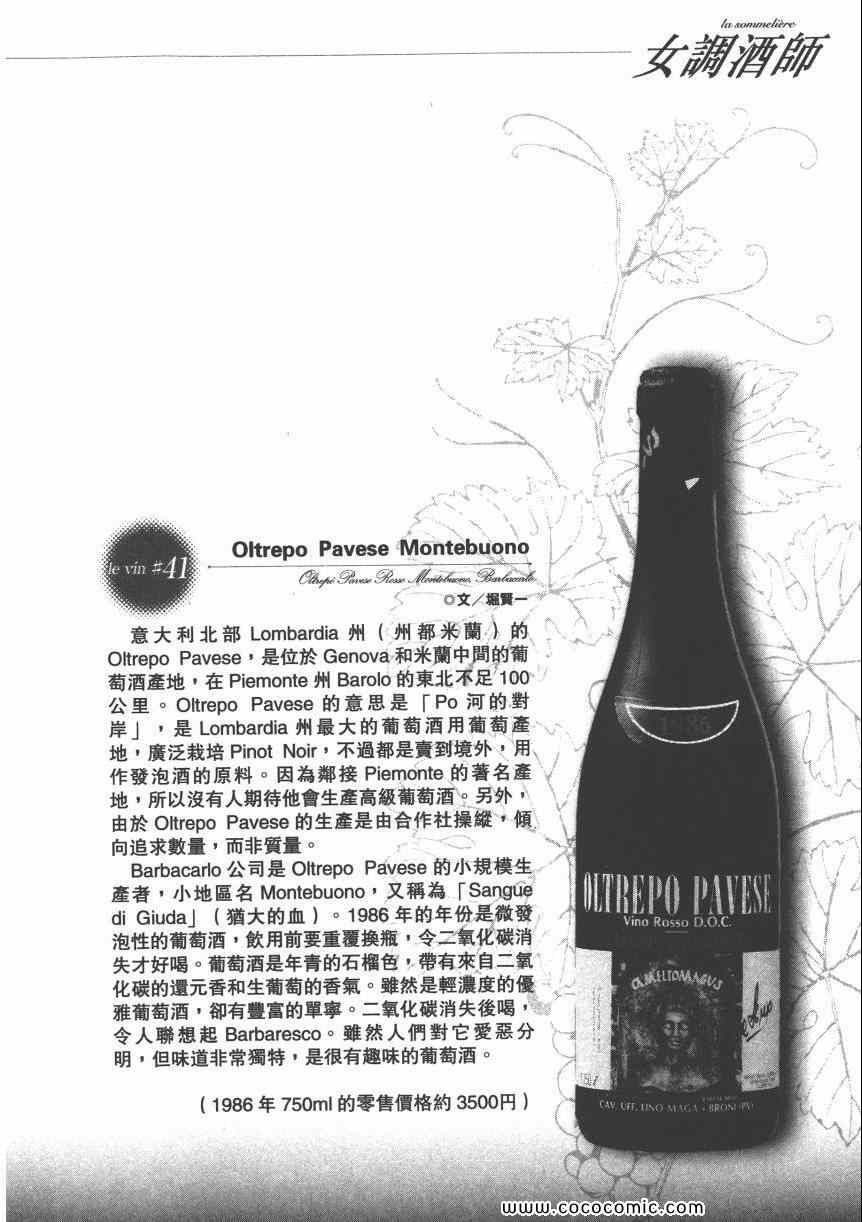 la sommelière
女調酒師
le vin #41
Oltrepo Pavese Montebuono
Oltrepò Pavese Rosso Montebuono, Barbacarlo
◎文／堀賢一
意大利北部 Lombardia 州（州都米蘭）的
Oltrepo Pavese，是位於 Genova 和米蘭中間的葡
萄酒產地，在 Piemonte 州 Barolo 的東北不足 100
公里。Oltrepo Pavese 的意思是「Po 河的對
岸」，是 Lombardia 州最大的葡萄酒用葡萄產
地，廣泛栽培 Pinot Noir，不過都是賣到境外，用
作發泡酒的原料。因為鄰接 Piemonte 的著名產
地，所以沒有人期待他會生產高級葡萄酒。另外，
由於 Oltrepo Pavese 的生產是由合作社操縱，傾
向追求數量，而非質量。
Barbacarlo 公司是 Oltrepo Pavese 的小規模生
產者，小地區名 Montebuono，又稱為「Sangue
di Giuda」（猶大的血）。1986 年的年份是微發
泡性的葡萄酒，飲用前要重覆換瓶，令二氧化碳消
失才好喝。葡萄酒是年青的石榴色，帶有來自二氧
化碳的還元香和生葡萄的香氣。雖然是輕濃度的優
雅葡萄酒，卻有豐富的單寧。二氧化碳消失後喝，
令人聯想起 Barbaresco。雖然人們對它愛惡分
明，但味道非常獨特，是很有趣味的葡萄酒。
（1986 年 750ml 的零售價格約 3500円）
1986
OLTREPO PAVESE
Vino Rosso D.O.C.
CAV. UFF. LINO MAGA - BRONI (PV)
www.cococomic.com